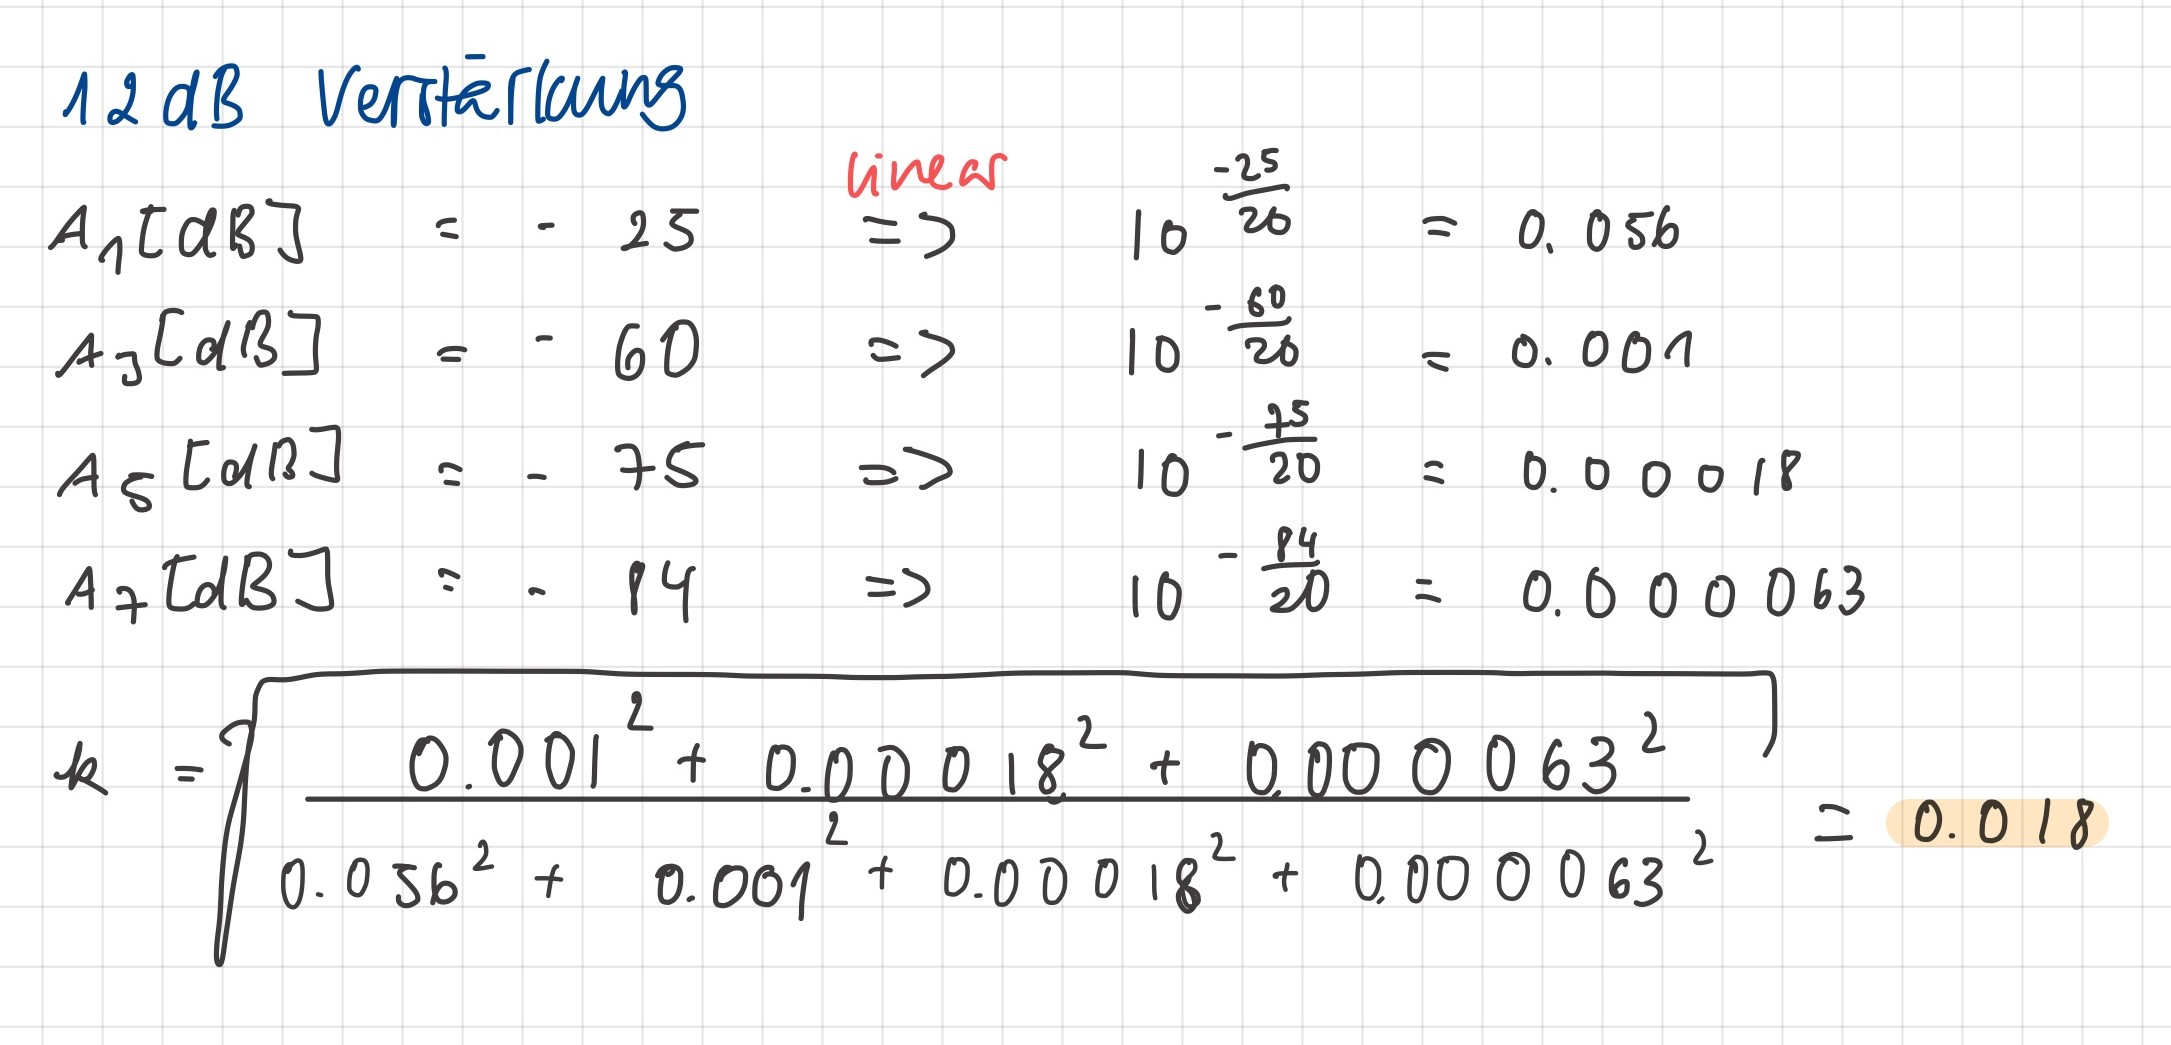 12 dB Verstärkung
linear
A₁[dB] = - 25 => 10^(-25/20) = 0.056
A₃[dB] = - 60 => 10^(-60/20) = 0.001
A₅[dB] = - 75 => 10^(-75/20) = 0.00018
A₇[dB] = - 84 => 10^(-84/20) = 0.000063
k = √((0.001² + 0.00018² + 0.000063²) / (0.056² + 0.001² + 0.00018² + 0.000063²)) = 0.018